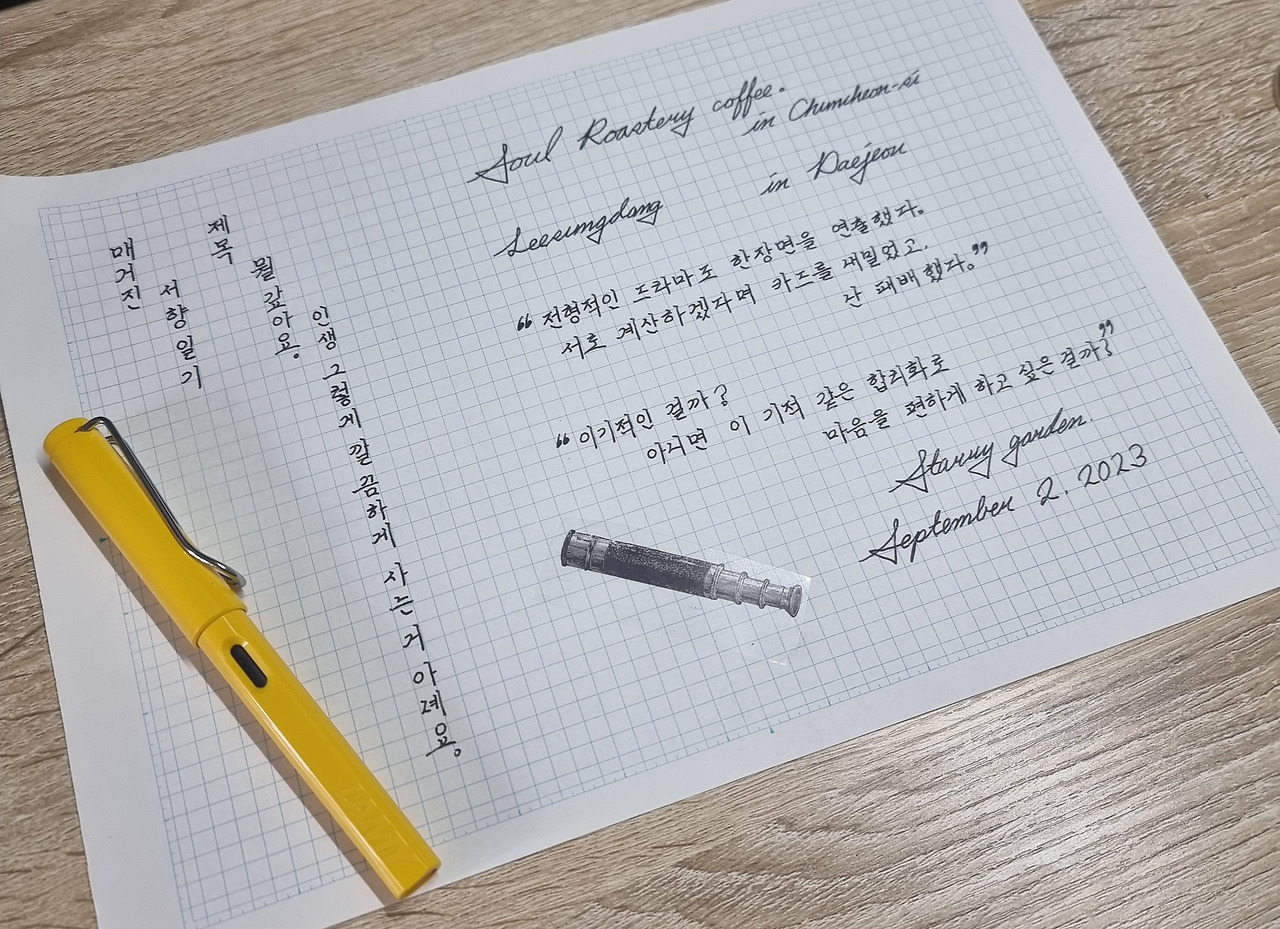 Soul Roastery coffee.
in Chuncheon-si
Leesungdang
in Daejeon
“전형적인 드라마도 한장면을 연출했다.
서로 계산하겠다며 카드를 내밀었고,
난 패배했다.”
“이기적인 걸까?
아니면 이 기적 같은 합리화로
마음을 편하게 하고 싶은걸까?”
Starry garden.
September 2, 2023
매거진
서향일기
제목
뭘 갚아요.
인생 그렇게 깔끔하게 사는거 아녜요.
LAMY